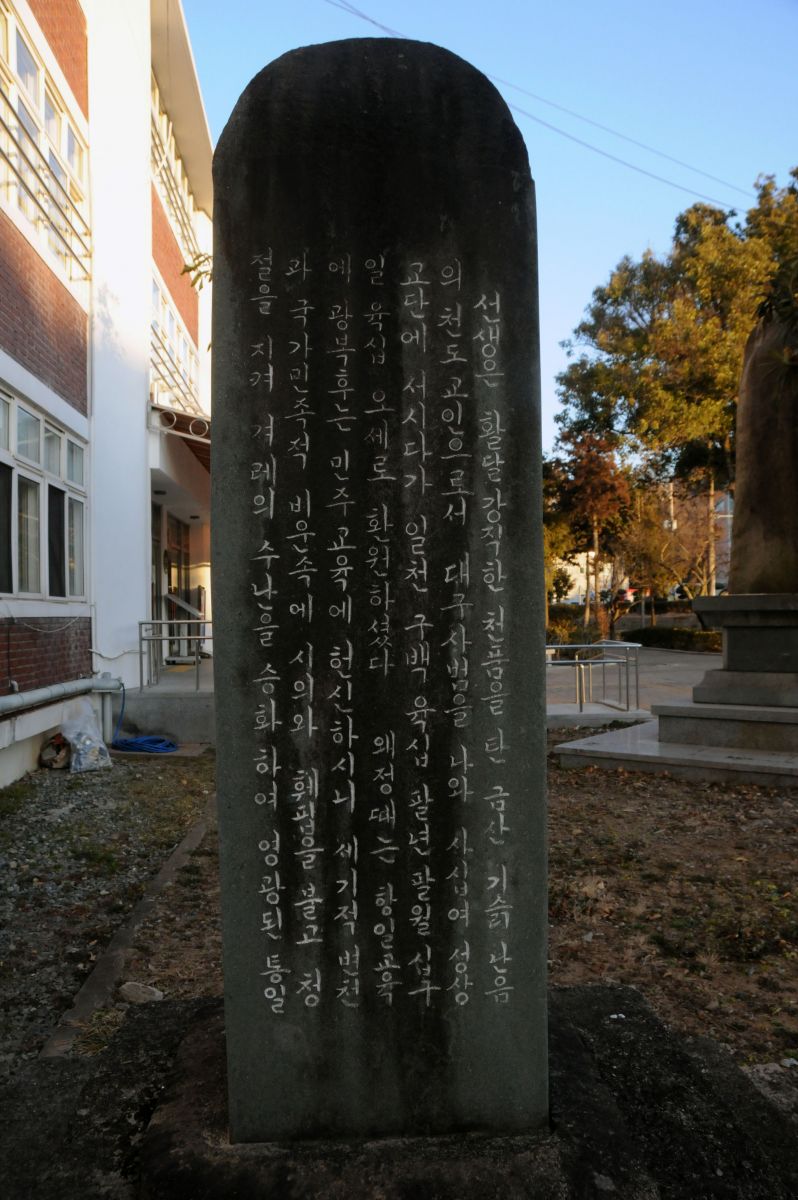 선생은 활달강직한 천품을 탄 금산 기슭 난음
의 천도교인으로서 대구사범을 나와 사십여 성상
교단에 서시다가 일천 구백 육십 팔년 팔월 십구
일 육십 오세로 환원하셨다 왜정때는 항일교육
에 광복후는 민주교육에 헌신하시니 세기적 변천
과 국가민족적 비운속에 시의와 훼핍을 불고 청
절을 지켜 겨레의 수난을 승화하여 영광된 통일